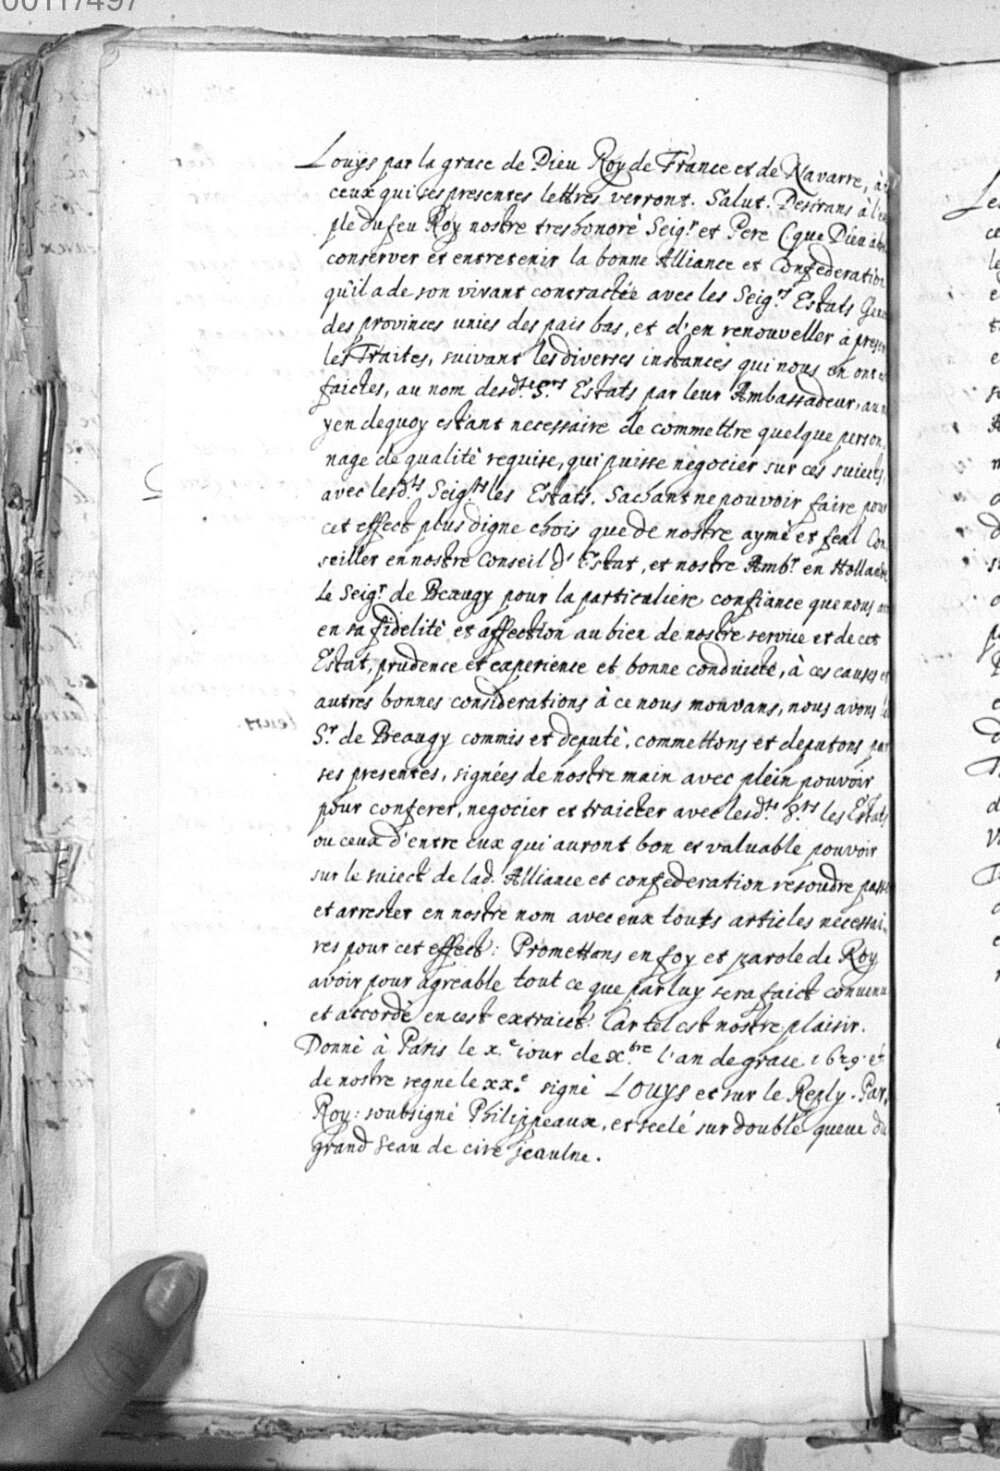 00117497
Louÿs par la grace de Dieu Roy de France et de Navarre, à
ceux qui ses presentes lettres verront. Salut. Desirans à l'e
ple du feu Roy nostre treshonoré Seigr et Pere (que Dieu
conserver et entretenir la bonne Alliance et Confederation
qu'il a de son vivant contractée avec les Seigrs Estats Gen
des provinces unies des pais bas, et d'en renouveller à presen
les Traites, suivant les diverses instances qui nous en ont
faictes, au nom desdts Sgrs Estats par leur Ambassadeur, au
yen dequoy estant necessaire de commettre quelque person,
nage de qualité requise, qui puisse negocier sur ces suiects,
avec lesdts Seigrs les Estats. Sachant ne pouvoir faire pour
cet effect plus digne chois que de nostre aymé et feal Con
seiller en nostre Conseil d'Estat, et nostre Ambr en Hollande
le Seigr de Beaugy pour la particuliere confiance que nous
en sa fidelité et affection au bien de nostre service et de cet
Estat, prudence et experience et bonne conduicte, à ces causes et
autres bonnes considerations à ce nous mouvans, nous avons le
leurs
Sr de Beaugy commis et deputé, commettons et deputons par
ses presentes, signées de nostre main avec plein pouvoir
pour conferer, negocier et traicter avec lesdts Srs les Estats
ou ceux d'entre eux qui auront bon et valuable pouvoir
sur le suiect de lad. Alliance et confederation resoudre passe
et arrester en nostre nom avec eux touts articles necessai,
res pour cet effect: Promettons en foy et parole de Roy
avoir pour agreable tout ce que par luy sera faict convenu
et accordé en cest extraict: Car tel est nostre plaisir.
Donné à Paris le x.e iour de xbre l'an de grace 1629. et
de nostre regne le xx.e signé Louys et sur le Reply. Par
Roy: soubsigné Philippeaux, et scelé sur double queue du
grand seau de cire jeaulne.